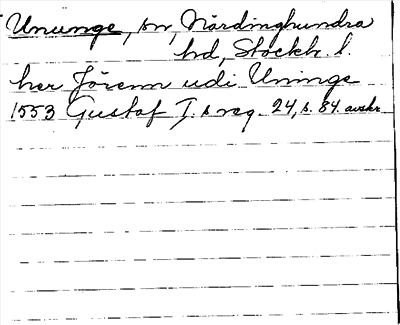 Ununge, sn, Närdinghundra
hd, Stockh. l.
her Jörenn udi Uninge
1553 Gustaf I:s reg. 24, s. 84. avskr.